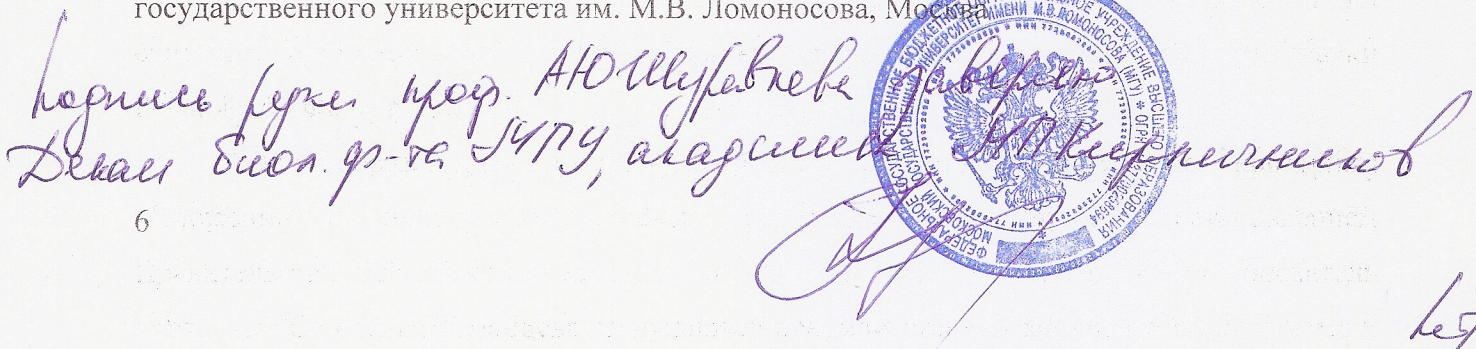 государственного университета им. М.В. Ломоносова, Москва
Подпись руки проф. А Ю Журавлева заверяю
Декан биол. ф-та МГУ, академик МП Кирпичников
6
ФЕДЕРАЛЬНОЕ ГОСУДАРСТВЕННОЕ БЮДЖЕТНОЕ УЧРЕЖДЕНИЕ ВЫСШЕГО ОБРАЗОВАНИЯ
МОСКОВСКИЙ ГОСУДАРСТВЕННЫЙ УНИВЕРСИТЕТ ИМЕНИ М.В.ЛОМОНОСОВА (МГУ) * ОГРН